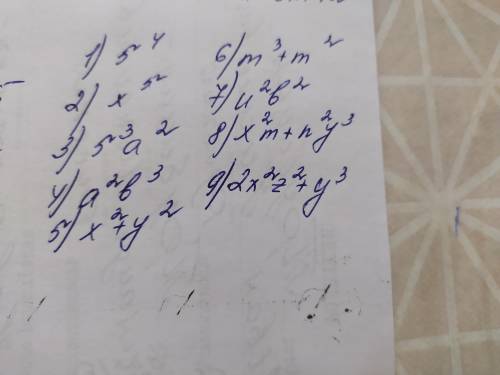 1) 5⁴
2) x⁵
3) 5³a²
4) a²b³
5) x²+y²
6) m³+m²
7) u²b²
8) x²m+n²y³
9) 2x²z²+y³